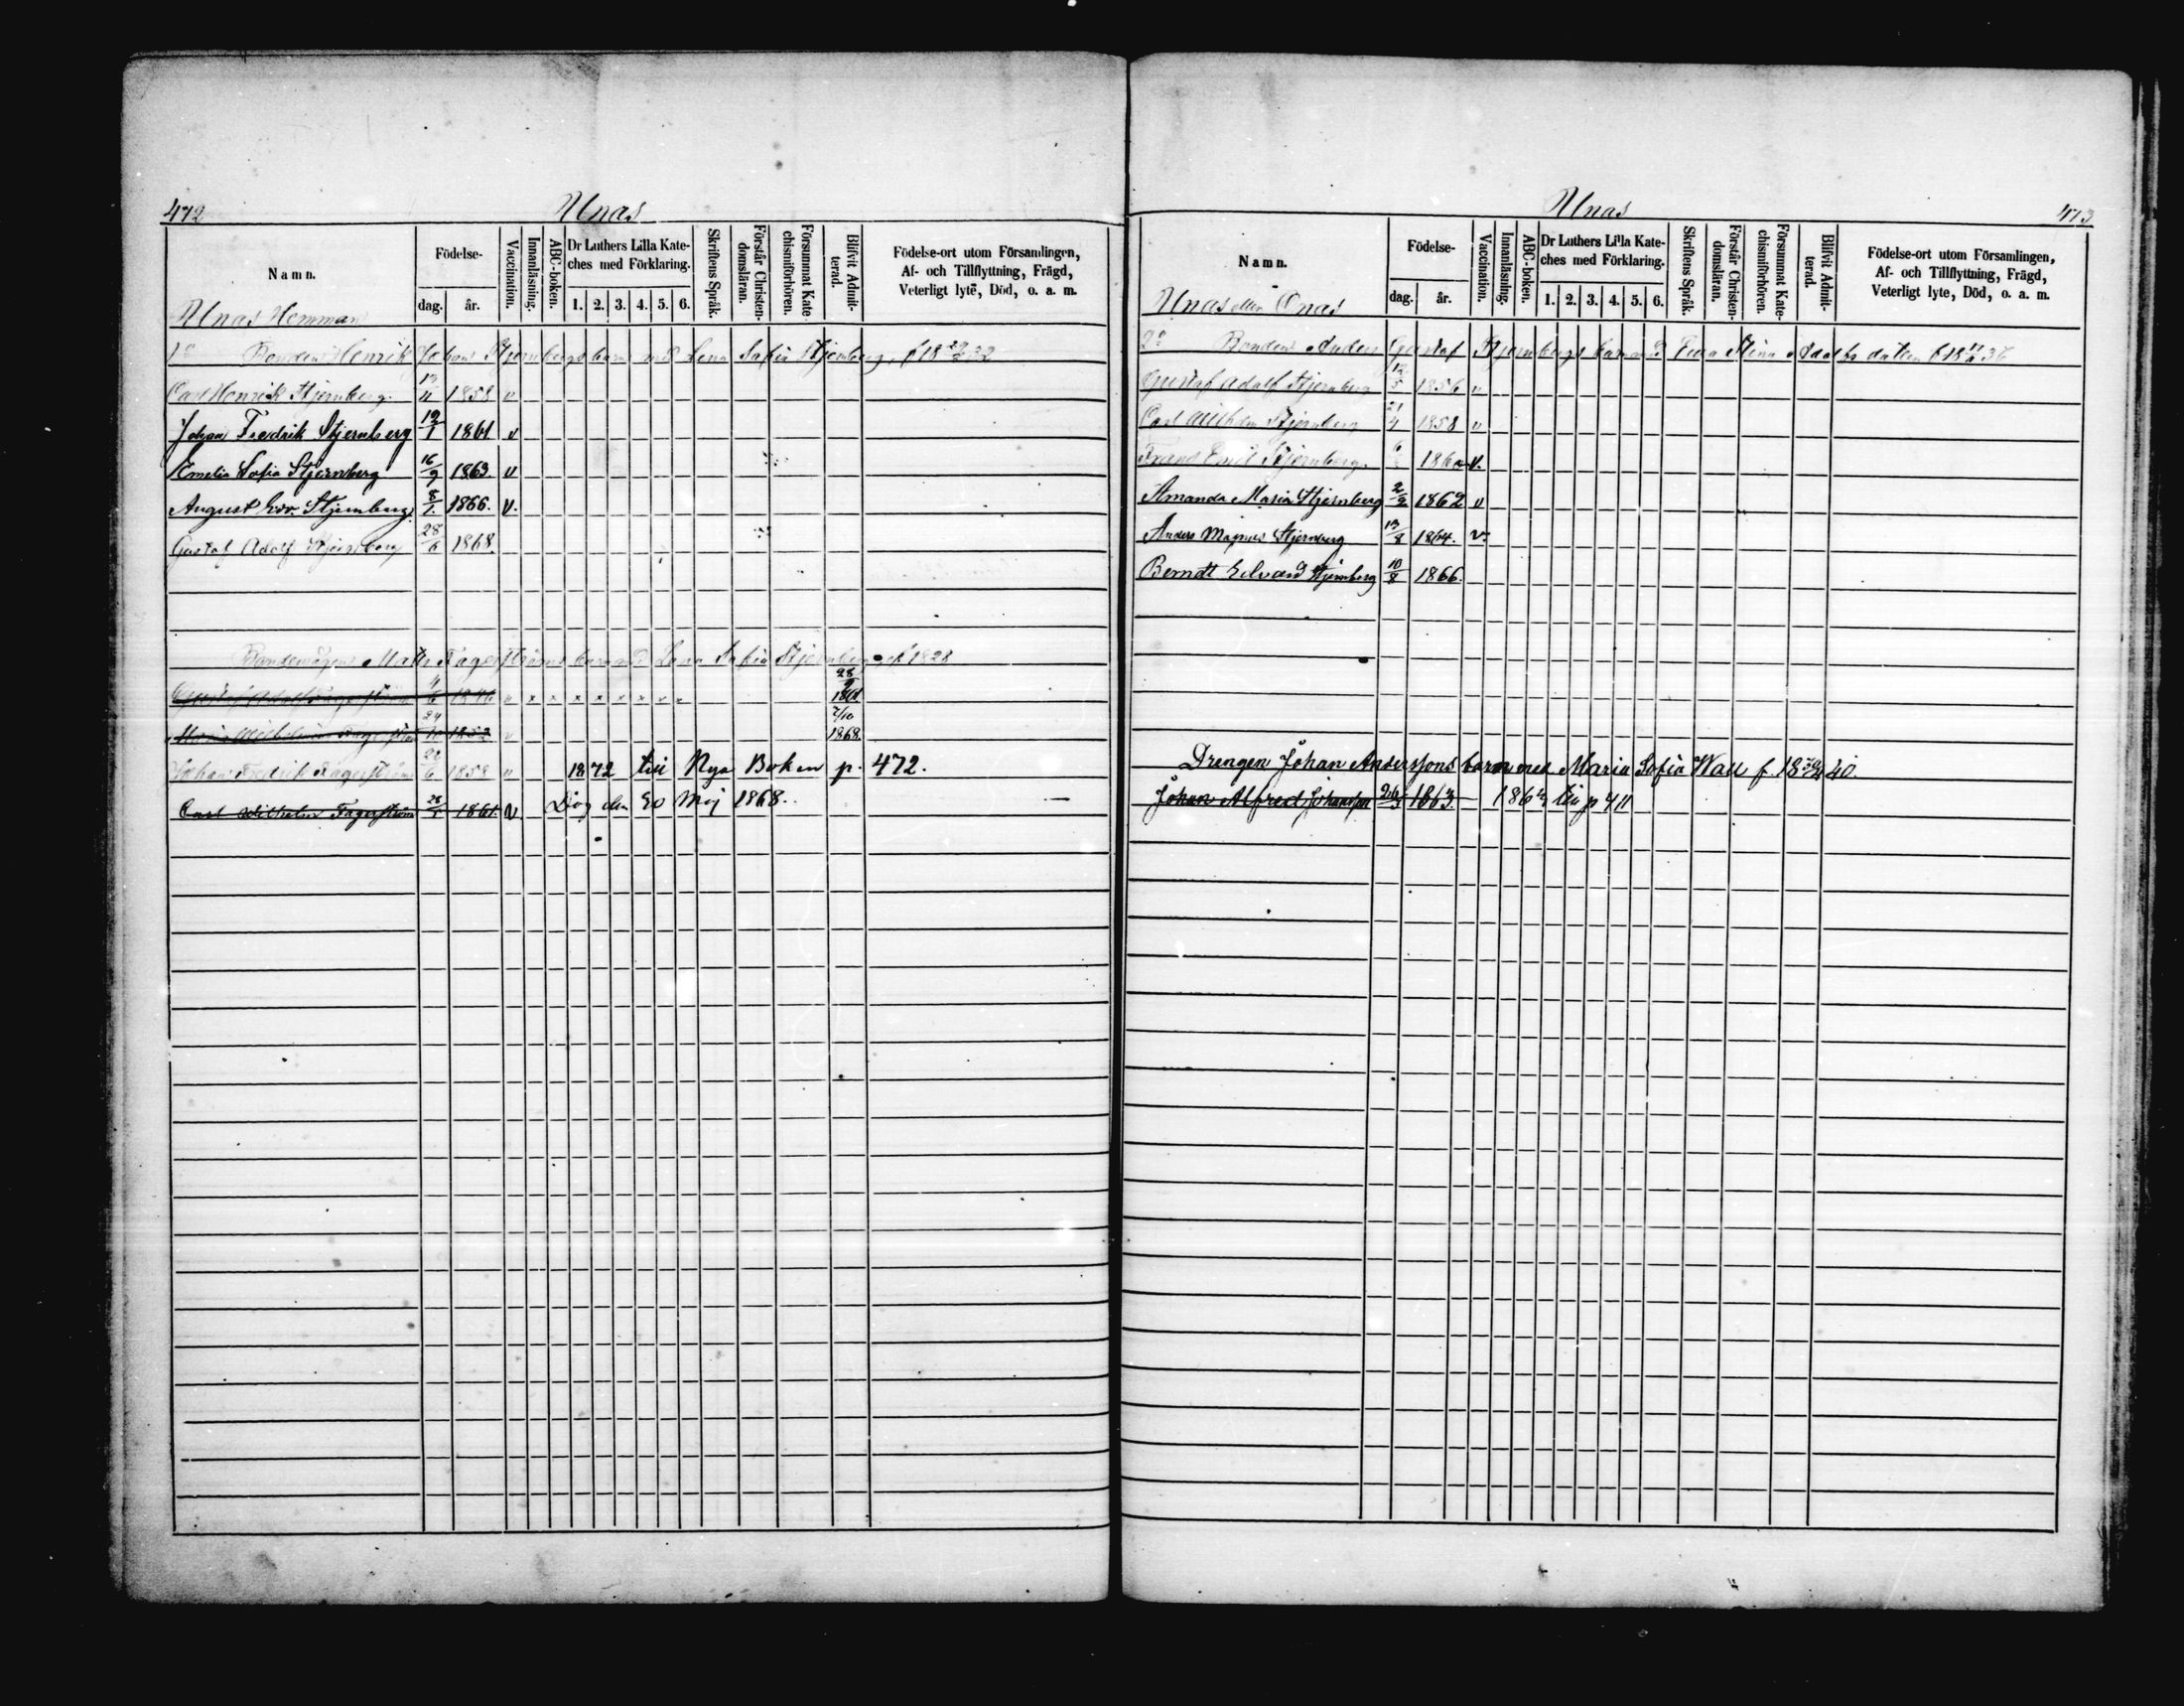 472
Unas
Namn.
Födelse-
dag.
år.
Vaccination.
Innanläsning.
ABC-boken.
Dr Luthers Lilla Kate-
ches med Förklaring.
1. 2. 3. 4. 5. 6.
Skriftens Språk.
Förstår Christen-
domsläran.
Försummat Kate-
chismiförhören.
Blifvit Admit-
terad.
Födelse-ort utom Församlingen,
Af- och Tillflyttning, Frägd,
Veterligt lyte, Död, o. a. m.
Unas Hemman
1º Bonden Henrik Johans Stjernbergs barn med Lena Sofia Stjernberg, f 18 32
Carl Henrik Stjernberg. 1858 v
Johan Fredrik Stjernberg 12/1 1861 v
Emelia Sofia Stjernberg 16/9 1863. v
August Edv. Stjernberg 8/1 1866. v.
Gustaf Adolf Stjernberg 28/6 1868.
Bondemågen Matts Fagerströms barn med Lena Sofia Stjernberg f 1828
Gustaf Adolf Fagerström 1846 v x x x x x x x x 28/9 1861
Maria Wilhelmina Fagerström 1852 v 7/10 1868.
Johan Fredrik Fagerström 1858 v 1872 till Nya Boken p. 472.
Carl Wilhelm Fagerström 1861. v Dog den 30 Maj 1868.
Unas
473
Namn.
Födelse-
dag.
år.
Vaccination.
Innanläsning.
ABC-boken.
Dr Luthers Lilla Kate-
ches med Förklaring.
1. 2. 3. 4. 5. 6.
Skriftens Språk.
Förstår Christen-
domsläran.
Försummat Kate-
chismiförhören.
Blifvit Admit-
terad.
Födelse-ort utom Församlingen,
Af- och Tillflyttning, Frägd,
Veterligt lyte, Död, o. a. m.
Unas eller Onas
2º Bonden Anders Gustaf Stjernbergs barn med Stina f 18 36
Gustaf Adolf Stjernberg 12/5 1856 v
Carl Wilhelm Stjernberg 21/4 1858 v
Frans Emil Stjernberg. 1860 v.
Amanda Maria Stjernberg 2/2 1862 v
Anders Magnus Stjernberg 13/8 1864. v.
Berndt Edvard Stjernberg 10/8 1866.
Drengen Johan Anderssons barn med Maria Sofia Wall f. 18 40.
Johan Alfred Johansson 1863 1864 till p 411